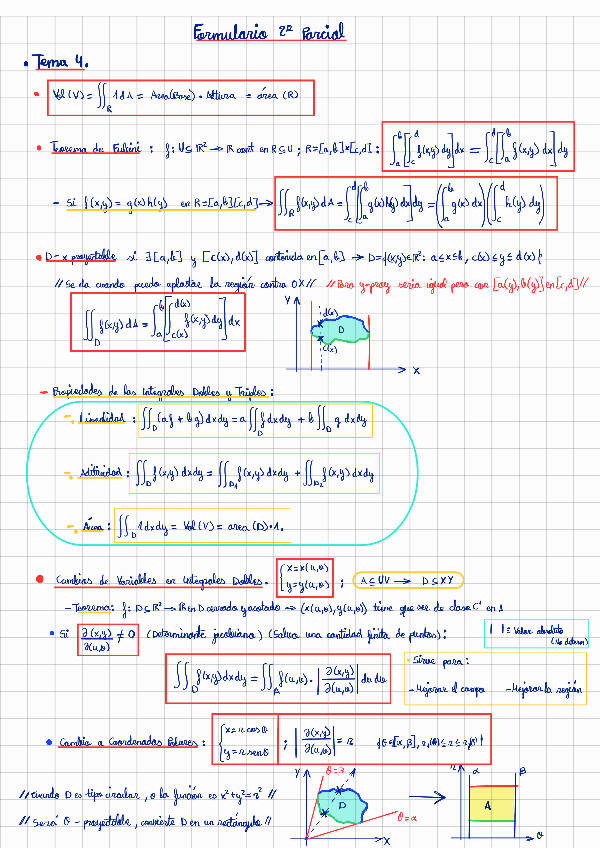 Formulario 2º Parcial
• Tema 4.
• Vol (V) = ∬_R 1 dA = Area (Base) · Altura = área (R)
• Teorema de Fubini : f: U ⊆ ℝ² → ℝ cont en R ⊆ U ; R = [a,b]×[c,d] : ∫_a^b [∫_c^d f(x,y) dy] dx = ∫_c^d [∫_a^b f(x,y) dx] dy
- Si f(x,y) = g(x) h(y) en R = [a,b][c,d] → ∬_R f(x,y) dA = ∫_c^d [∫_a^b g(x) h(y) dx] dy = (∫_a^b g(x) dx) (∫_c^d h(y) dy)
• D - x proyectable si ∃ [a,b] y [c(x), d(x)] contenida en [a,b] → D = {(x,y) ∈ ℝ² : a ≤ x ≤ b, c(x) ≤ y ≤ d(x)}
// Se da cuando puedo aplastar la región contra OX // // Para y-proy seria igual pero con [a(y), b(y)] en [c,d] //
∬_D f(x,y) dA = ∫_a^b [∫_{c(x)}^{d(x)} f(x,y) dy] dx
Y
d(x)
D
c(x)
X
- Propiedades de las Integrales Dobles y Triples :
- Linealidad : ∬_D (af + bg) dxdy = a ∬_D f dxdy + b ∬_D g dxdy
- Aditividad : ∬_D f(x,y) dxdy = ∬_{D1} f(x,y) dxdy + ∬_{D2} f(x,y) dxdy
- Área : ∬_D 1 dxdy = Vol (V) = area (D) · 1.
• Cambios de Variables en Integrales Dobles. { x = x(u,v) y = y(u,v) ; A ⊆ UV → D ⊆ XY
- Teorema : f: D ⊆ ℝ² → ℝ en D cerrado y acotado → (x(u,v), y(u,v)) tiene que ser de clase C¹ en A
• Si ∂(x,y)/∂(u,v) ≠ 0 (Determinante jacobiano) (Salvo una cantidad finita de puntos) :
| | ≡ Valor absoluto
(No determ)
∬_D f(x,y) dxdy = ∬_A f(u,v) · |∂(x,y)/∂(u,v)| du dv
• Sirve para :
- Mejorar el campo - Mejorar la región
• Cambio a Coordenadas Polares : { x = r cosθ y = r senθ ; |∂(x,y)/∂(u,v)| = r {θ ∈ [α,β], r₁(θ) ≤ r ≤ r₂(θ)}
// Cuando D es tipo circular, o la función es x² + y² = r² //
// Será θ - proyectable, convierte D en un rectángulo //
Y
D
θ = α
X
r
α
β
A
θ